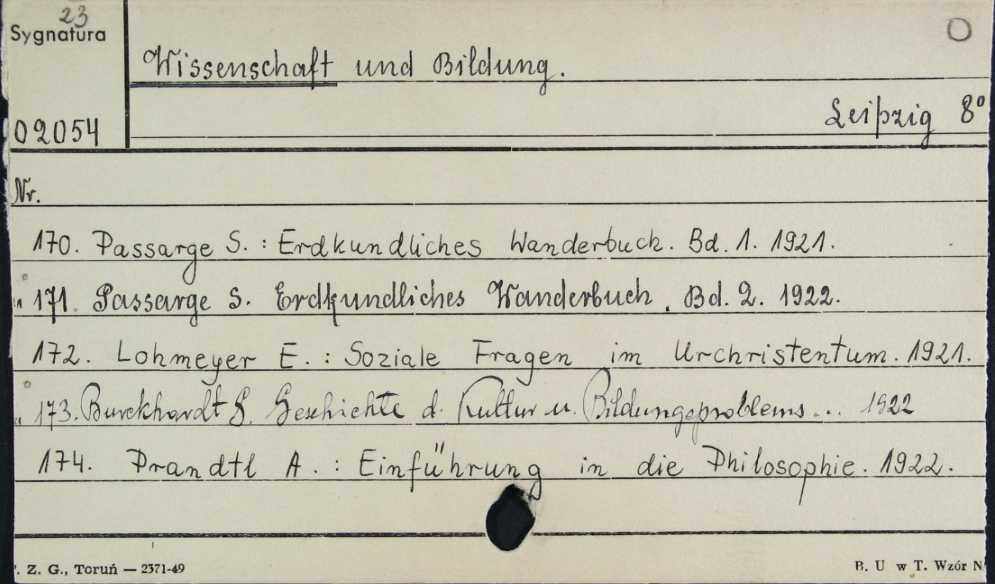 23
Sygnatura
02054
Wissenschaft und Bildung.
Leipzig 8°
Nr.
170. Passarge S. : Erdkundliches Wanderbuch. Bd. 1. 1921.
" 171. Passarge S. Erdkundliches Wanderbuch. Bd. 2. 1922.
172. Lohmeyer E. : Soziale Fragen im Urchristentum. 1921.
" 173. Burckhardt G. Geschichte d. Kultur u. Bildungsproblems... 1922
174. Prandtl A. : Einführung in die Philosophie. 1922.
. Z. G., Toruń — 2371-49
B. U w T. Wzór N